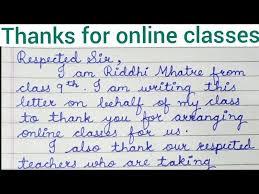 Thanks for online classes
Respected Sir,
I am Riddhi Mhatre from
class 9th. I am writing this
letter on behalf of my class
to thank you for arranging
online classes for us.
I also thank our respected
teachers who are taking